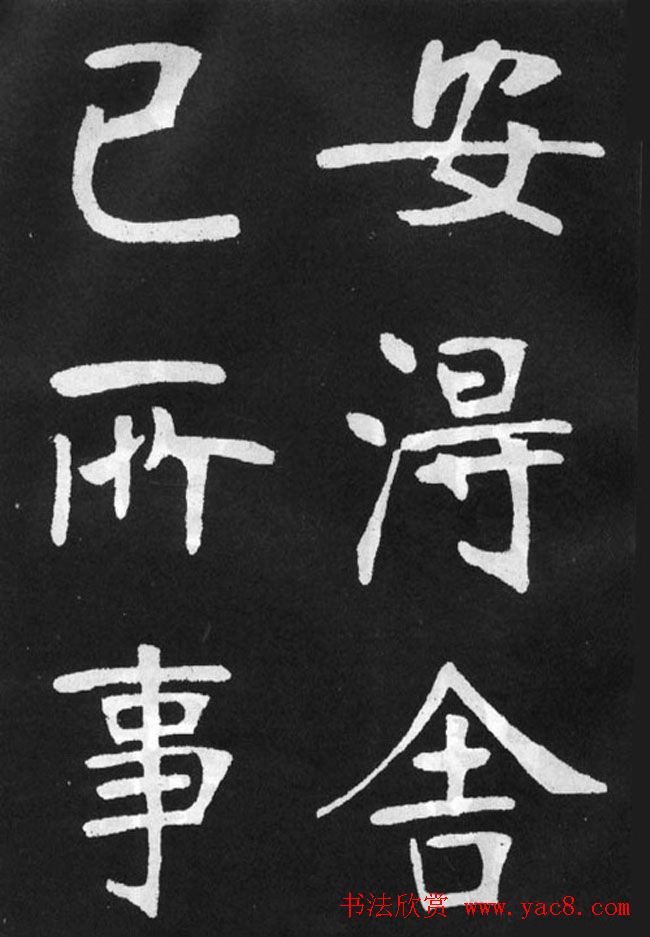 安得舍
已所事
书法欣赏 www.yac8.com